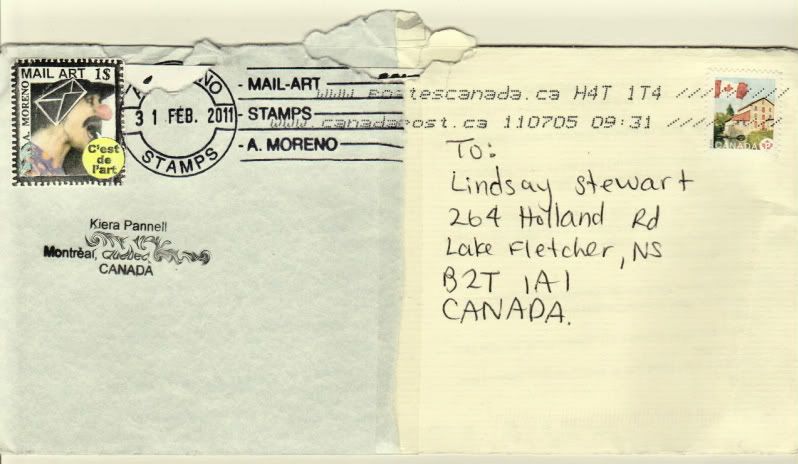 MAIL ART 1$
A. MORENO
C'est
de
l'art
MORENO
31 FÉB. 2011
STAMPS
- MAIL-ART
- STAMPS
- A. MORENO
www.postescanada.ca H4T 1T4
www.canadapost.ca 110705 09:31
CANADA P
Kiera Pannell
Montrèal, Quebec,
CANADA
TO:
Lindsay Stewart
264 Holland Rd
Lake Fletcher, NS
B2T 1A1
CANADA.